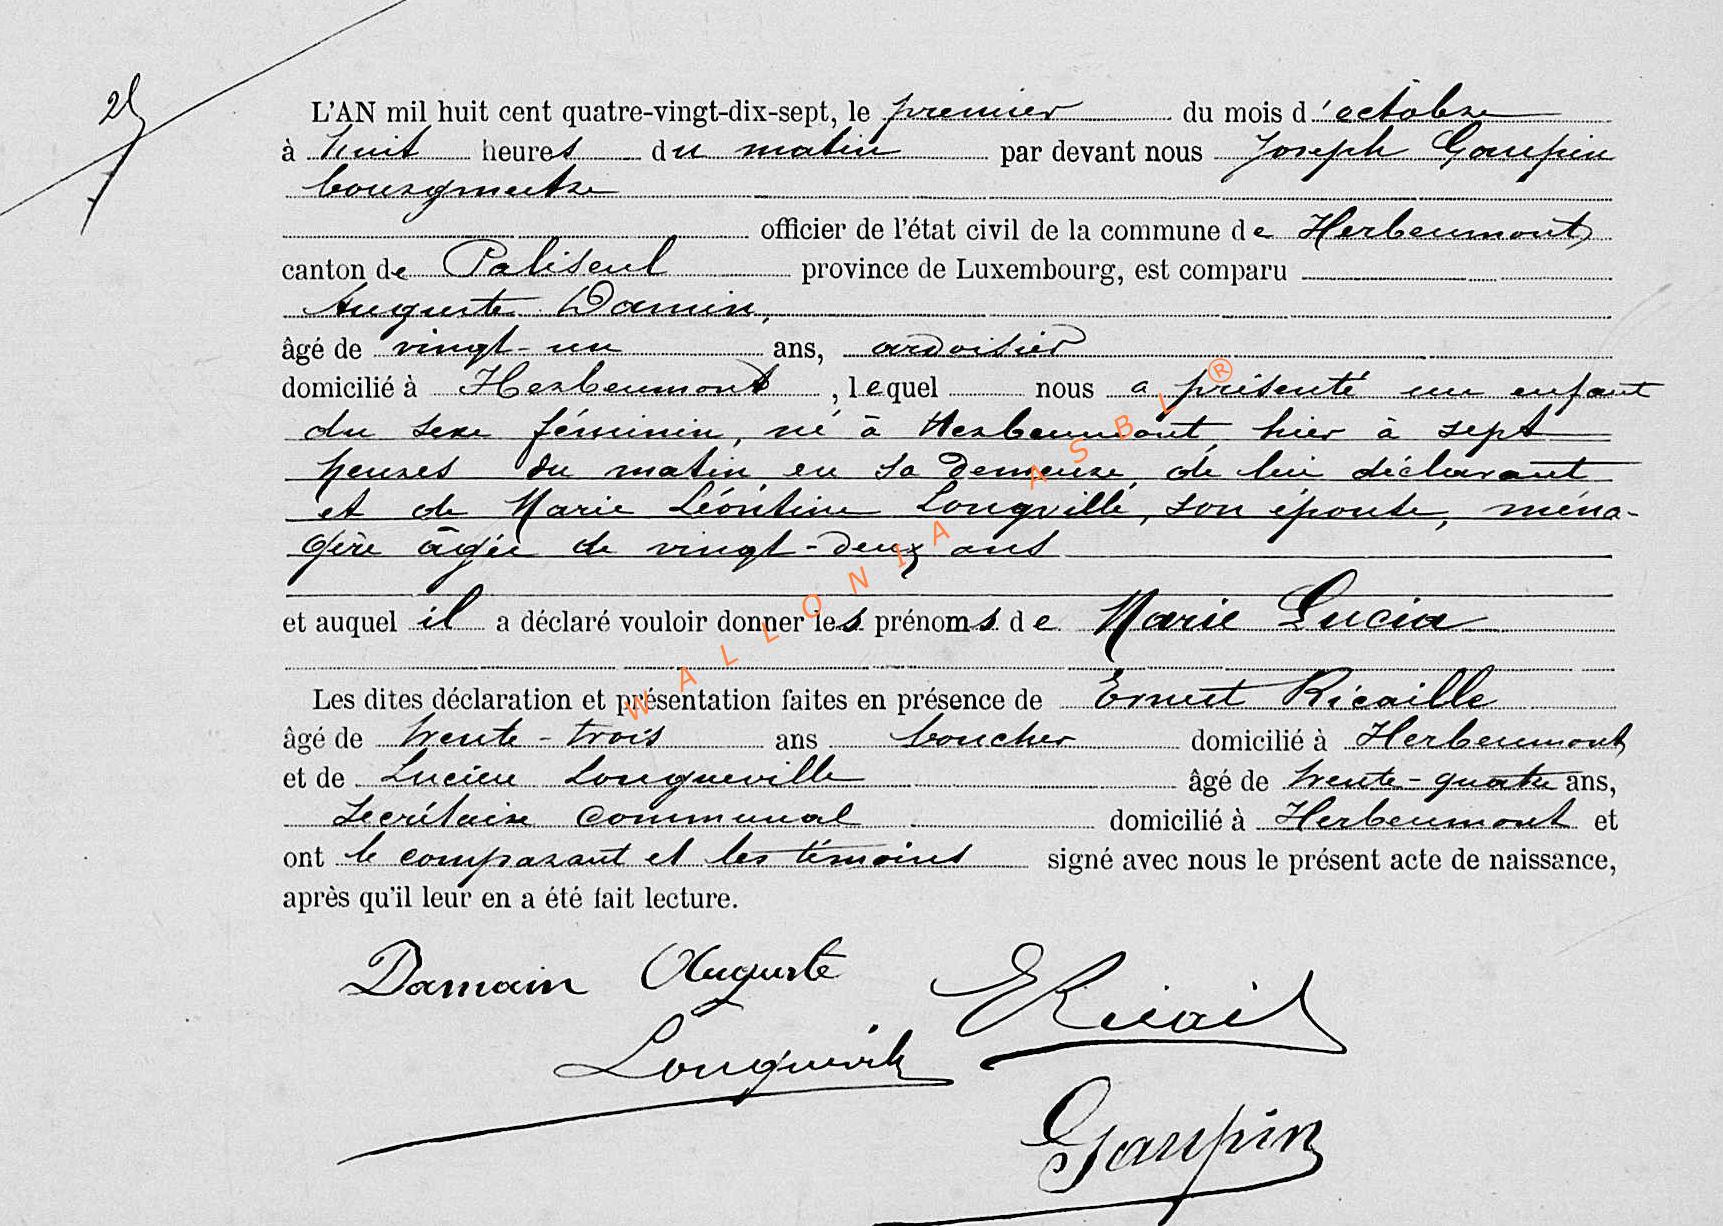 25
L'AN mil huit cent quatre-vingt-dix-sept, le premier du mois d'octobre
à huit heures du matin par devant nous Joseph Gaupin
bourgmestre
officier de l'état civil de la commune de Herbeumont
canton de Paliseul province de Luxembourg, est comparu
Auguste Damin,
âgé de vingt-un ans, ardoisier
domicilié à Herbeumont, lequel nous a présenté un enfant
du sexe féminin, né à Herbeumont, hier à sept
heures du matin en sa demeure, de lui déclarant
et de Marie Léontine Longville, son épouse, ména-
gère âgée de vingt-deux ans
et auquel il a déclaré vouloir donner les prénoms de Marie Lucia
Les dites déclaration et présentation faites en présence de Ernest Ricaille
âgé de trente-trois ans boucher domicilié à Herbeumont
et de Lucien Longueville âgé de trente-quatre ans,
secrétaire communal domicilié à Herbeumont et
ont le comparant et les témoins signé avec nous le présent acte de naissance,
après qu'il leur en a été fait lecture.
Damain Auguste
ERicail
Longuevile
Gaupin
WALLONIA ASBL ®